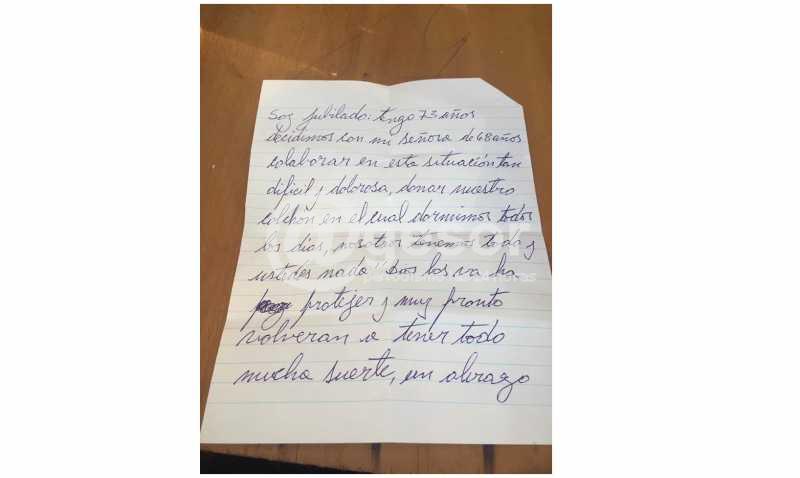 Soy jubilado: tengo 73 años
decidimos con mi señora de 68 años
colaborar en esta situación tan
dificil y dolorosa, donar nuestro
colchón en el cual dormimos todos
los dias, nosotros tenemos todo y
ustedes nada" Dios los va ha
protejer y muy pronto
volveran a tener todo
mucha suerte, un abrazo